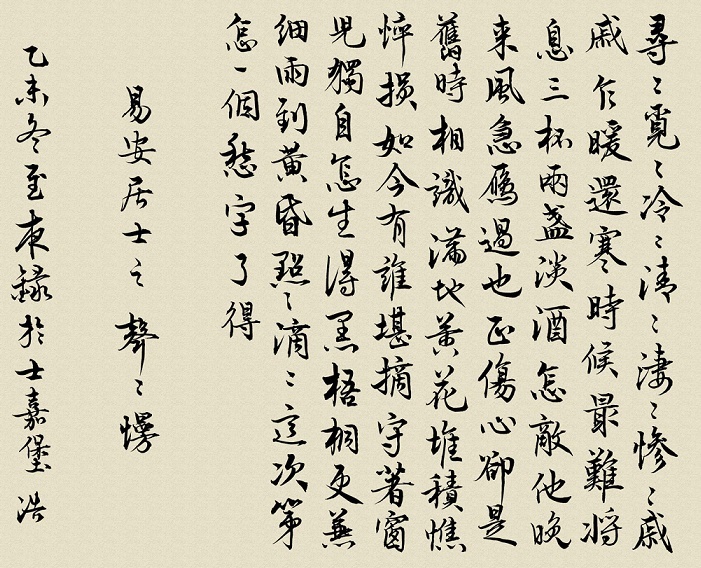 尋〻覓〻冷〻清〻淒〻慘〻戚
戚乍暖還寒時候最難將
息三杯兩盞淡酒怎敵他晚
来風急雁過也正傷心卻是
舊時相識滿地黃花堆積憔
悴損如今有誰堪摘守著窗
児獨自怎生得黑梧桐更兼
細雨到黃昏點〻滴〻這次第
怎一個愁字了得
易安居士之聲〻慢
乙未冬至夜錄於士嘉堡浩